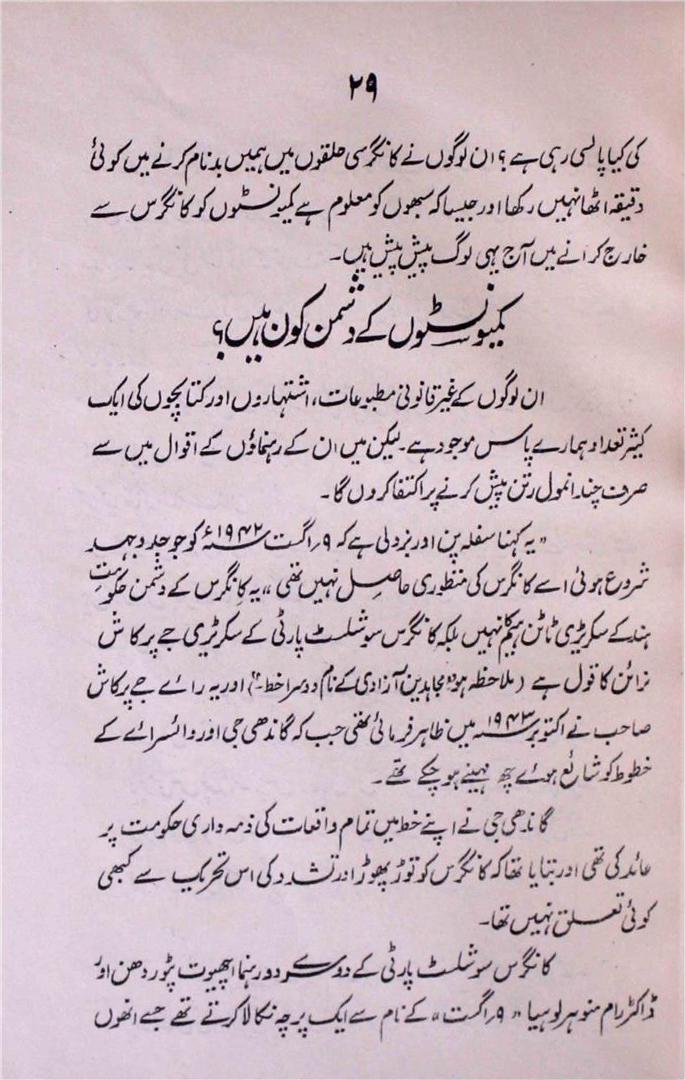 ۲۹
کی کیا پالسی رہی ہے؟ ان لوگوں نے کانگرسی حلقوں میں ہمیں بدنام کرنے میں کوئی
دقیقہ اٹھا نہیں رکھا اور جیسا کہ سبھوں کو معلوم ہے کمیونسٹوں کو کانگرس سے
خارج کرانے میں آج یہی لوگ پیش پیش ہیں۔
کمیونسٹوں کے دشمن کون ہیں؟
ان لوگوں کے غیر قانونی مطبوعات، اشتہاروں اور کتابچوں کی ایک
کثیر تعداد ہمارے پاس موجود ہے۔ لیکن میں ان کے رہنماؤں کے اقوال میں سے
صرف چند انمول رتن پیش کرنے پر اکتفا کروں گا۔
”یہ کہنا سفلہ پن اور بزدلی ہے کہ ۹؍ اگست ۱۹۴۲ء کو جو جدوجہد
شروع ہوئی اسے کانگرس کی منظوری حاصل نہیں تھی“ یہ کانگرس کے دشمن حکومتِ
ہند کے سکریٹری ٹاٹن ہیم کا نہیں بلکہ کانگرس سوشلسٹ پارٹی کے سکرٹیری جے پرکاش
نرائن کا قول ہے (ملاحظہ ہو ”مجاہدین آزادی کے نام دوسرا خط۔“) اور یہ رائے جے پرکاش
صاحب نے اکتوبر ۱۹۴۳ء میں ظاہر فرمائی تھی جب کہ گاندھی جی اور وائسرائے کے
خطوط کو شائع ہوئے چھ مہینے ہو چکے تھے۔
گاندھی جی نے اپنے خط میں تمام واقعات کی ذمہ داری حکومت پر
عائد کی تھی اور بتایا تھا کہ کانگرس کو توڑ پھوڑ اور تشدد کی اس تحریک سے کبھی
کوئی تعلق نہیں تھا۔
کانگرس سوشلسٹ پارٹی کے دوسرے دو رہنما اچیوت پٹوردھن اور
ڈاکٹر رام منوہر لوہیا ”۹؍ اگست“ کے نام سے ایک پرچہ نکالا کرتے تھے جسے انھوں